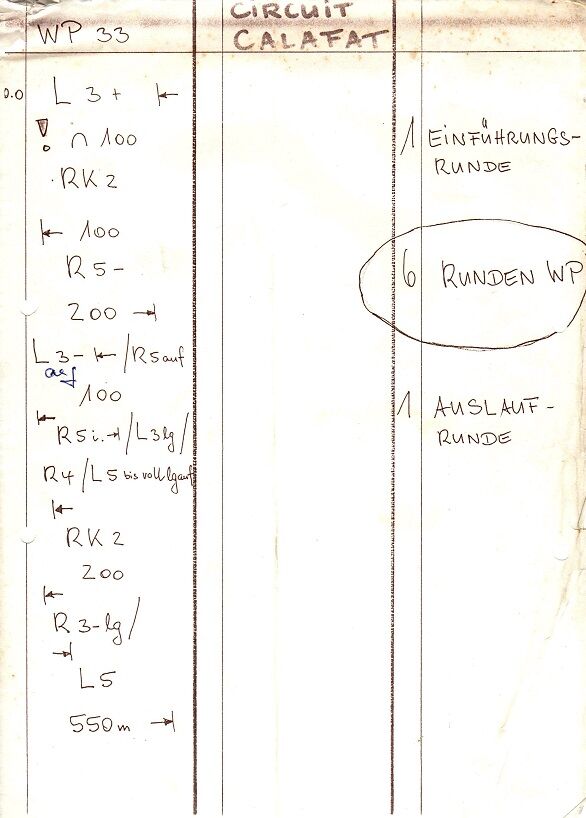 WP 33
CIRCUIT
CALAFAT
0.0 L 3+ |←
! ∩ 100
·RK2
|← 100
R5-
200 →|
L3- |← /R5auf
auf
100
|←
R5i.→|/L3lg/
R4/L5 bis voll lg auf
|←
RK2
200
|←
R3-lg/
→|
L5
550m →|
1 EINFÜHRUNGS-
RUNDE
6 RUNDEN WP
1 AUSLAUF-
RUNDE